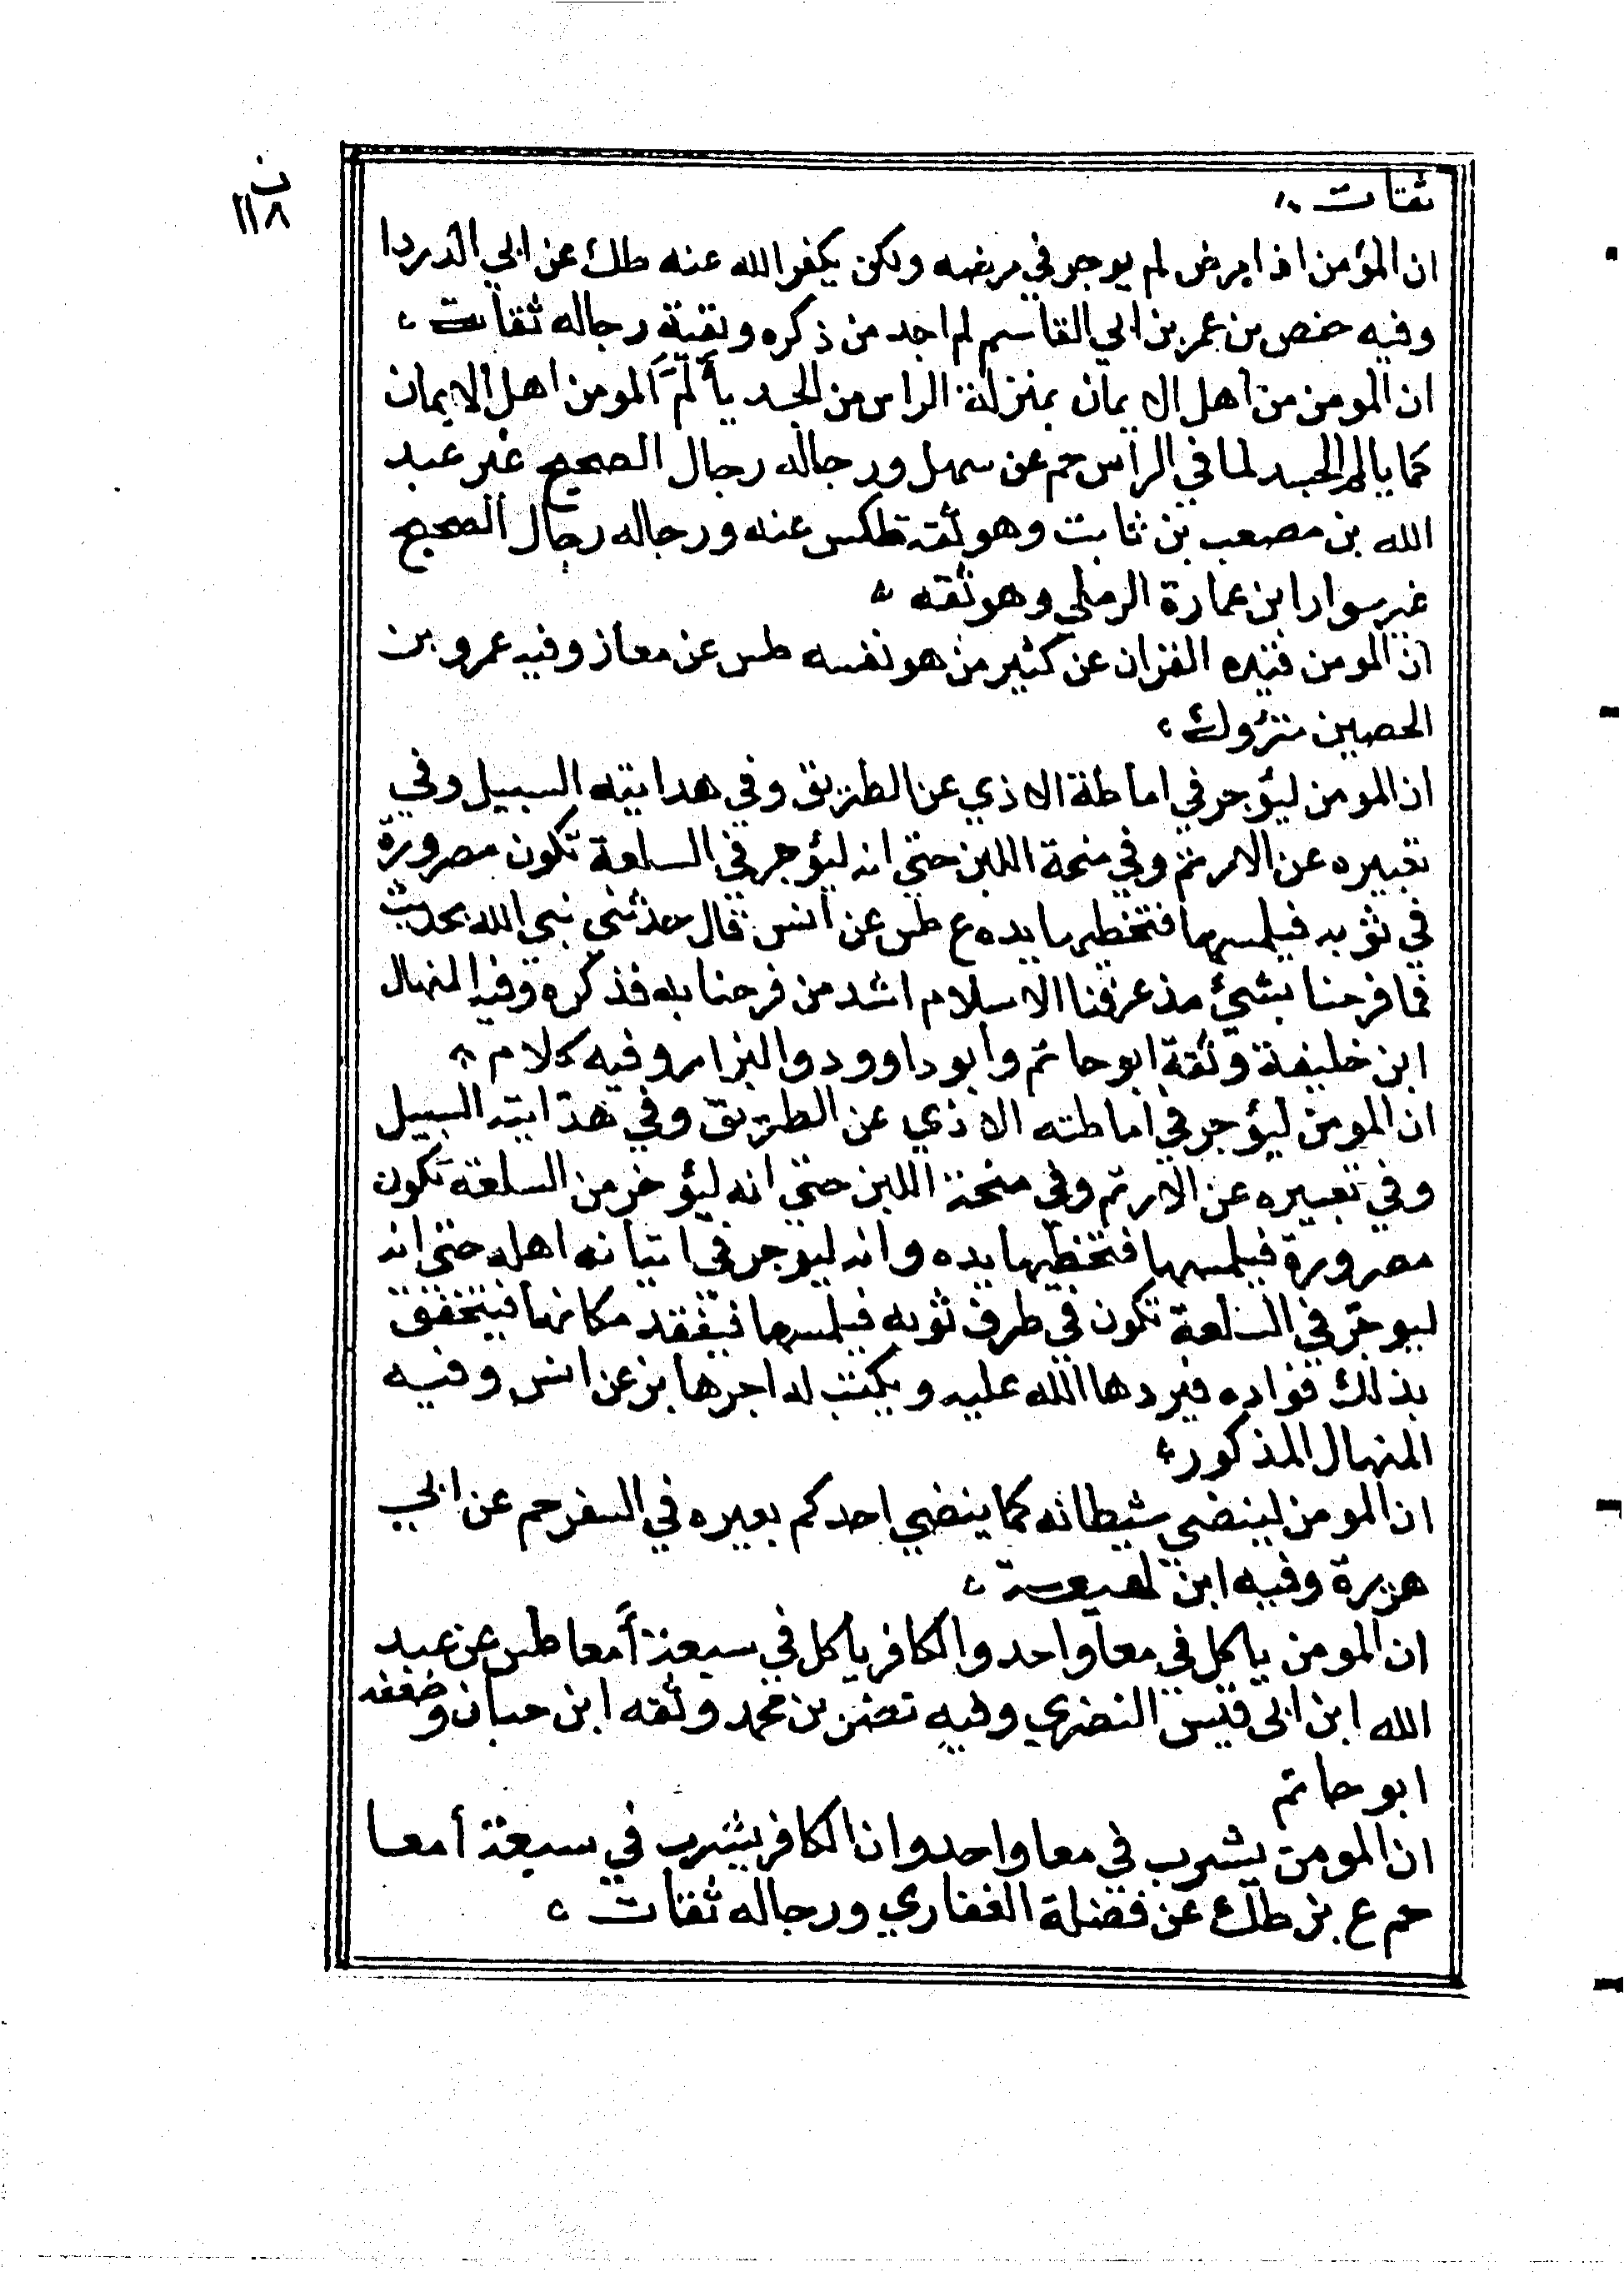 ب
١١٨
ثقات
ان المؤمن اذا مرض لم يوجر في مرضه ولكن يكفر الله عنه طك عن ابي الدردا
وفيه حفص بن عمر بن ابي القاسم لم اجد من ذكره وبقية رجاله ثقات
ان المومن من اهل الايمان بمنزلة الراس من الجسد يألم المومن اهل الايمان
كما يالم الجسد لما في الرأس حم عن سهل ورجاله رجال الصحيح غير عبد
الله بن مصعب بن ثابت وهو ثقة طكس عنه ورجاله رجال الصحيح
غير سوار ابن عمارة الرملي وهو ثقه
ان المومن قيده القران عن كثير من هو نفسه طس عن معاز وفيه عمرو بن
الحصين متروك
ان المومن ليؤجر في اماطة الاذي عن الطريق وفي هدايته السبيل وفي
تعبيره عن الارتم وفي منحة اللبن حتي انه ليؤجر في السلعة تكون مصرورة
في ثوبه فيلمسها فتخطيها يده ع طس عن أنس قال حدثني نبي الله بحديث
فما فرحنا بشيئ مذ عرفنا الاسلام اشد من فرحنا به فذكره وفيه المنهال
ابن خليفة وثقة ابو حاتم وأبو داوود والبزار وفيه كلام
ان المومن ليؤجر في اماطته الاذي عن الطريق وفي هدايته السبيل
وفي تعبيره عن الارتم وفي منحة اللبن حتي انه ليؤخر من السلعة تكون
مصرورة فيلمسها فتخطيها يده وانه ليوجر في اتيانه اهله حتى انه
ليوجر في السلعة تكون في طرف ثوبه فيلمسها فيفقد مكانها فيتخفق
بذلك فواده فيردها الله عليه ويكتب له اجرها بز عن انس وفيه
المنهال المذكور
ان المومن لينضي شيطانه كما ينضي احدكم بعيره في السفر حم عن ابي
هريرة وفيه ابن لهيعة
ان المومن ياكل في معا واحد والكافر ياكل في سبعة أمعا طس عن عبد
الله ابن ابى قيس النضري وفيه تعنن بن محمد وثقه ابن حبان وضعفه
ابو حاتم
ان المومن يشرب في معا واحد وان الكافر يشرب في سبعة أمعا
حم ع بز طك عن فضلة الغفاري ورجاله ثقات